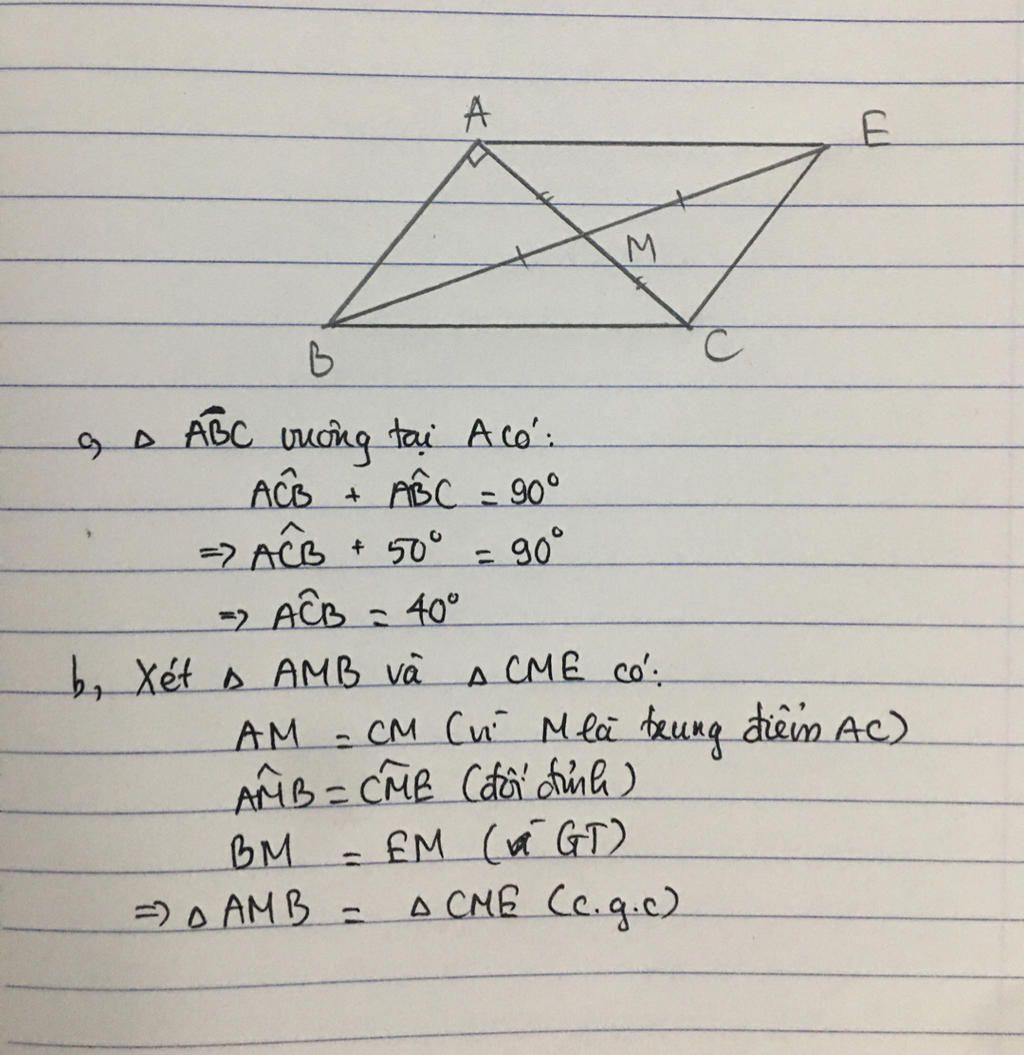 A
E
M
B
C
a, Δ ABC vuông tại A có:
AĈB + AB̂C = 90°
=> AĈB + 50° = 90°
=> AĈB = 40°
b, Xét Δ AMB và Δ CME có:
AM = CM (vì M là trung điểm AC)
AM̂B = CM̂E (đối đỉnh)
BM = EM (vì GT)
=> Δ AMB = Δ CME (c.g.c)